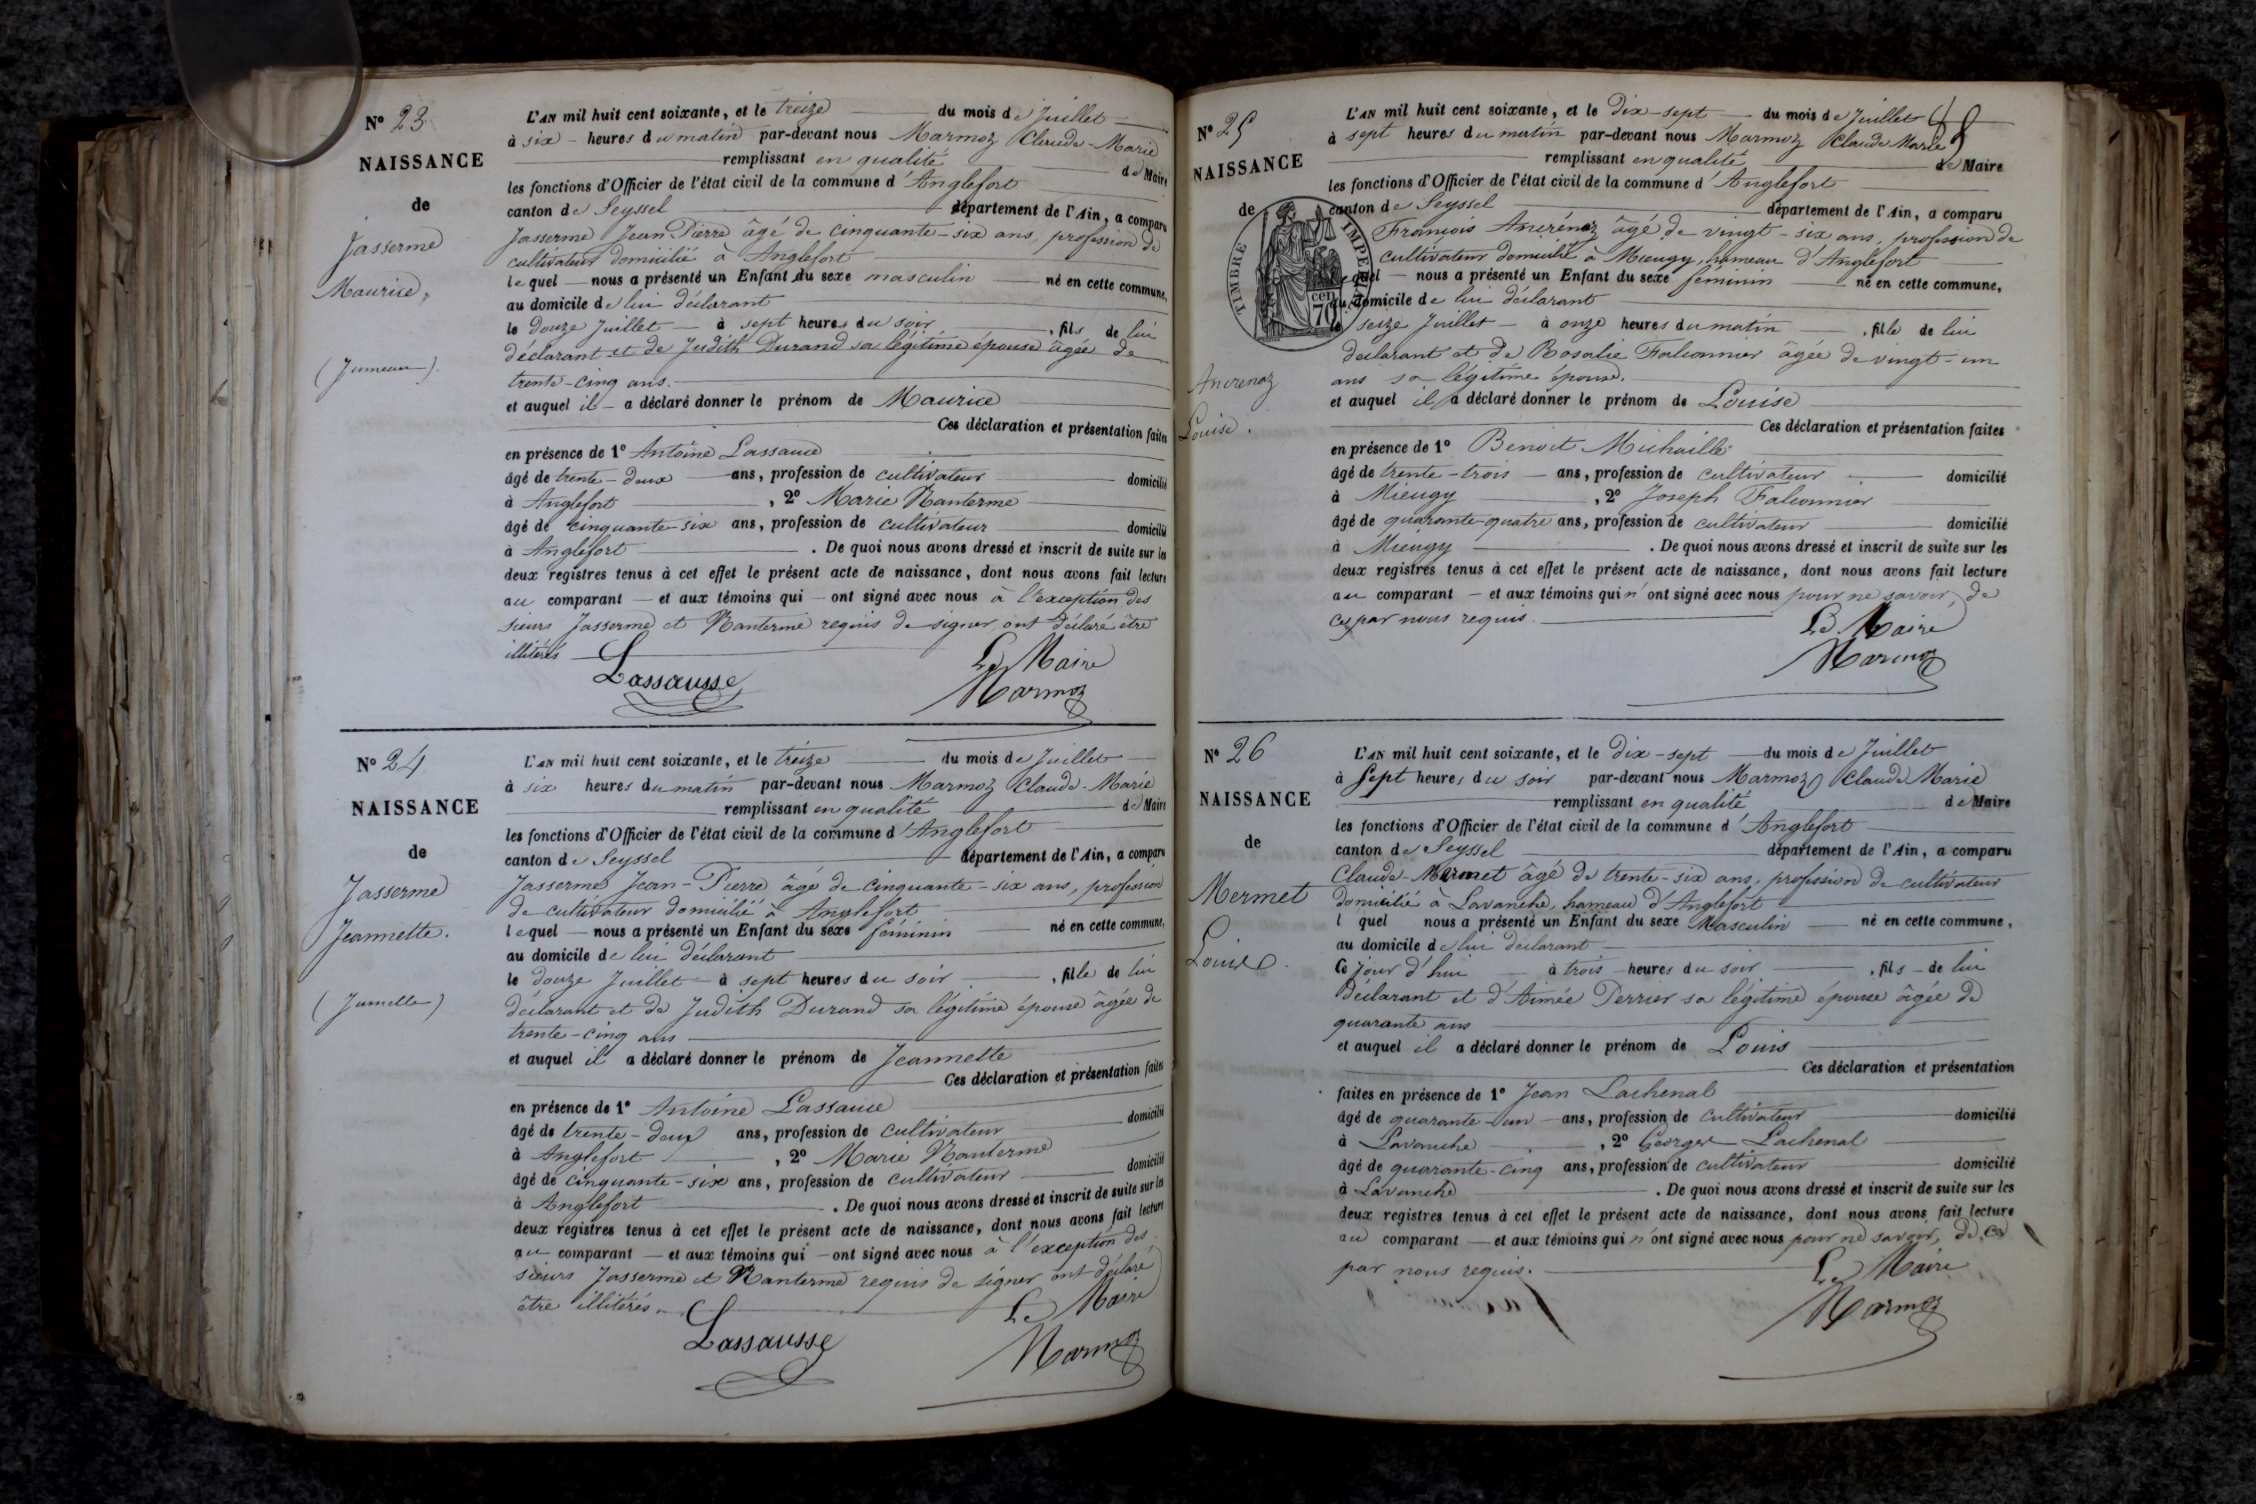 N° 23
NAISSANCE
de
Jasserme
Maurice,
(Jumeau).
L'AN mil huit cent soixante, et le treize du mois de Juillet
à six heures du matin par-devant nous Marmoz Claude-Marie
remplissant en qualité de Maire
les fonctions d'Officier de l'état civil de la commune d'Anglefort
canton de Seyssel département de l'Ain, a comparu
Jasserme Jean-Pierre âgé de cinquante-six ans, profession de
cultivateur domicilié à Anglefort
lequel nous a présenté un Enfant du sexe masculin né en cette commune,
au domicile de lui déclarant
le douze Juillet à sept heures du soir, fils de lui
déclarant et de Judith Durand sa légitime épouse âgée de
trente-cinq ans.
et auquel il a déclaré donner le prénom de Maurice
Ces déclaration et présentation faites
en présence de 1° Antoine Lassauce
âgé de trente-deux ans, profession de cultivateur domicilié
à Anglefort, 2° Marie Nanterme
âgé de cinquante-six ans, profession de cultivateur domicilié
à Anglefort. De quoi nous avons dressé et inscrit de suite sur les
deux registres tenus à cet effet le présent acte de naissance, dont nous avons fait lecture
au comparant et aux témoins qui ont signé avec nous à l'exception des
sieurs Jasserme et Nanterme requis de signer, ont déclaré être
illitérés
Le Maire
Lassausse Marmoz
N° 24
NAISSANCE
de
Jasserme
Jeannette.
(Jumelle)
L'AN mil huit cent soixante, et le treize du mois de Juillet
à six heures du matin par-devant nous Marmoz Claude-Marie
remplissant en qualité de Maire
les fonctions d'Officier de l'état civil de la commune d'Anglefort
canton de Seyssel département de l'Ain, a comparu
Jasserme Jean-Pierre âgé de cinquante-six ans, profession
de cultivateur domicilié à Anglefort
lequel nous a présenté un Enfant du sexe féminin né en cette commune,
au domicile de lui déclarant
le douze Juillet à sept heures du soir, fille de lui
déclarant et de Judith Durand sa légitime épouse âgée de
trente-cinq ans
et auquel il a déclaré donner le prénom de Jeannette
Ces déclaration et présentation faites
en présence de 1° Antoine Lassauce
âgé de trente-deux ans, profession de cultivateur domicilié
à Anglefort, 2° Marie Nanterme
âgé de cinquante-six ans, profession de cultivateur domicilié
à Anglefort. De quoi nous avons dressé et inscrit de suite sur les
deux registres tenus à cet effet le présent acte de naissance, dont nous avons fait lecture
au comparant et aux témoins qui ont signé avec nous à l'exception des
sieurs Jasserme et Nanterme requis de signer ont déclaré
être illitérés.
Le Maire
Lassausse Marmoz
N° 25
NAISSANCE
de
Ancrenaz
Louise.
TIMBRE IMPERIAL
70 cen
L'AN mil huit cent soixante, et le Dix-sept du mois de Juillet
à sept heures du matin par-devant nous Marmoz Claude Marie
remplissant en qualité de Maire
les fonctions d'Officier de l'état civil de la commune d'Anglefort
canton de Seyssel département de l'Ain, a comparu
François Ancrénaz âgé de vingt-six ans, profession de
cultivateur domicilié à Mieugy, hameau d'Anglefort
lequel nous a présenté un Enfant du sexe féminin né en cette commune,
au domicile de lui déclarant
le seize Juillet à onze heures du matin, fille de lui
déclarant et de Rosalie Falconnier âgée de vingt-un
ans sa légitime épouse.
et auquel il a déclaré donner le prénom de Louise
Ces déclaration et présentation faites
en présence de 1° Benoit Michaille
âgé de trente-trois ans, profession de cultivateur domicilié
à Mieugy, 2° Joseph Falconnier
âgé de quarante-quatre ans, profession de cultivateur domicilié
à Mieugy. De quoi nous avons dressé et inscrit de suite sur les
deux registres tenus à cet effet le présent acte de naissance, dont nous avons fait lecture
au comparant et aux témoins qui n'ont signé avec nous pour ne savoir, de
ce par nous requis.
Le Maire
Marmoz
N° 26
NAISSANCE
de
Mermet
Louis
L'AN mil huit cent soixante, et le Dix-sept du mois de Juillet
à Sept heures du soir par-devant nous Marmoz Claude Marie
remplissant en qualité de Maire
les fonctions d'Officier de l'état civil de la commune d'Anglefort
canton de Seyssel département de l'Ain, a comparu
Claude Mermet âgé de trente-six ans, profession de cultivateur
domicilié à Lavanche, hameau d'Anglefort
l quel nous a présenté un Enfant du sexe Masculin né en cette commune,
au domicile de lui déclarant
Ce jour d'hui à trois heures du soir, fils de lui
déclarant et d'Aimée Perrier sa légitime épouse âgée de
quarante ans
et auquel il a déclaré donner le prénom de Louis
Ces déclaration et présentation
faites en présence de 1° Jean Lachenal
âgé de quarante-un ans, profession de cultivateur domicilié
à Lavanche, 2° Georges Lachenal
âgé de quarante-cinq ans, profession de cultivateur domicilié
à Lavanche. De quoi nous avons dressé et inscrit de suite sur les
deux registres tenus à cet effet le présent acte de naissance, dont nous avons fait lecture
au comparant et aux témoins qui n'ont signé avec nous pour ne savoir, de ce
par nous requis.
Le Maire
Marmoz